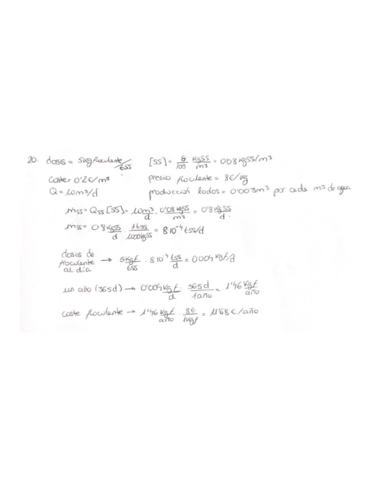 20. dosis = 5 kg floculante/tSS [SS] = 8/100 kgSS/m³ = 0'08 kgSS/m³
coste = 0'2 €/m³ precio floculante = 8€/kg
Q = 10 m³/d producción lodos = 0'003m³ por cada m³ de agua
mss = Qss [SS] = 10m³/d · 0'08 kgSS/m³ = 0'8 kgSS/d
mss = 0'8 kgSS/d · 1tSS/1000kgSS = 8·10⁻⁴ tSS/d
dosis de floculante al día → 5kgf/tSS · 8·10⁻⁴ tSS/d = 0'004 kgf/d
un año (365d) → 0'004 kgf/d · 365d/1año = 1'46 kgf/año
coste floculante → 1'46 kgf/año · 8€/1kgf = 11'68 €/año